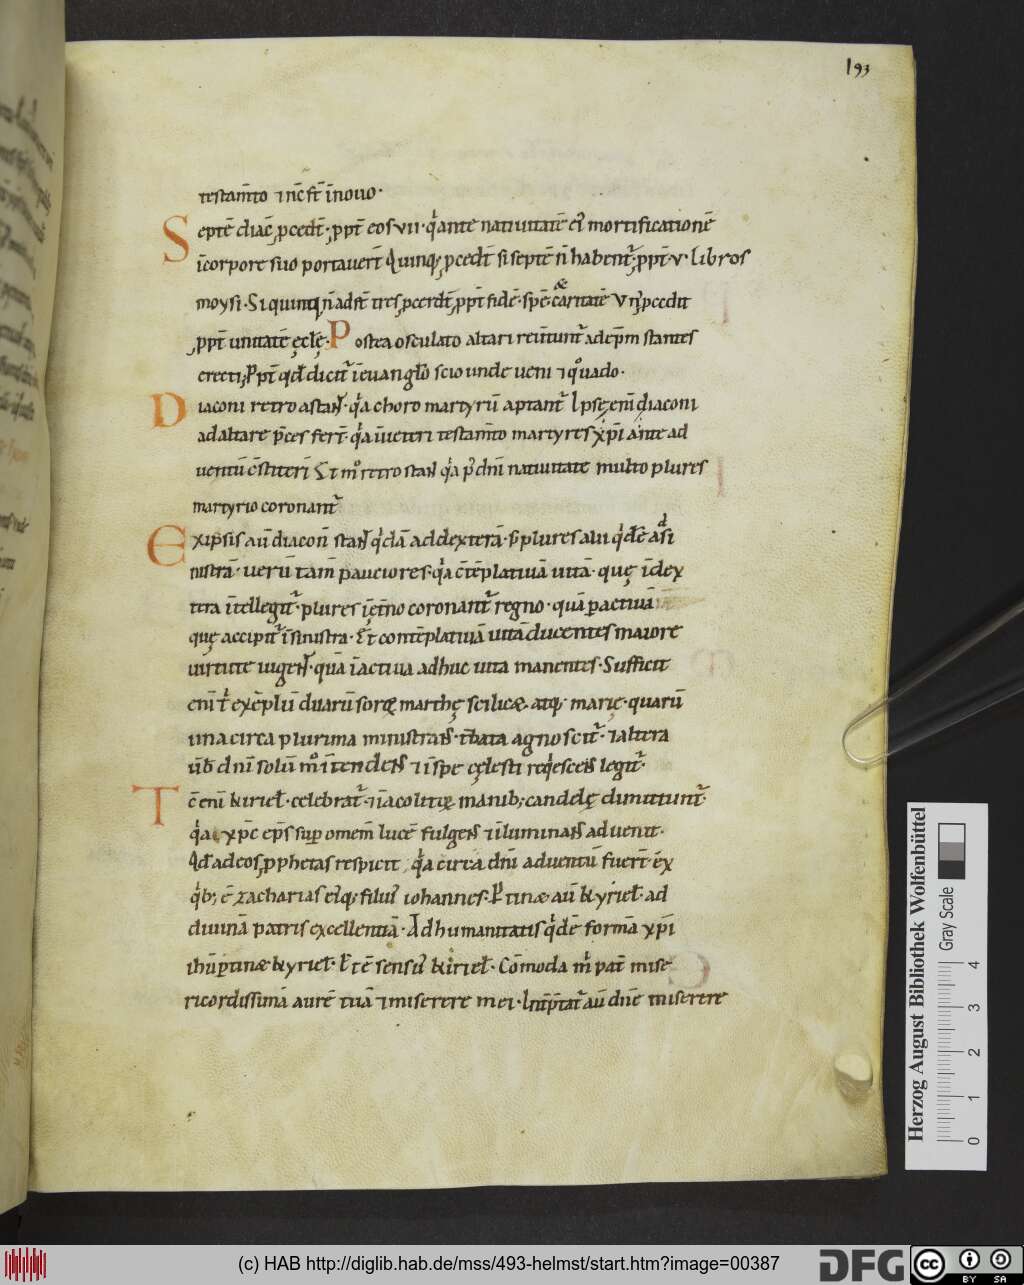 193
testam̄to ⁊ nc̄ st̄ īnouo·
Septē diac̄ p̱cedt̄· ꝓpt̄ eos vıı· q̍ ante natiuitatē ei᷒ mortificationē
īcorpore suo portauert̄ Quinq; p̱cedt̄ si septē n̄ habent᷑; ꝓpt̄ v· libros
moysi· Si quinq; n̄ adst̄ tres p̱cedt̄; ꝓpt̄ fidē· spē· & caritatē Vn᷒ p̱cedit
ꝓpt̄ unitatē ęclę̄· Postea osculato altari reūtunt᷑ ad ep̄m stantes
erecti; Ppt̄ qd̄ dicit᷑ īeuanglō scio unde ueni ⁊ quo uado·
Diaconi retro astan̄t· q̍a choro martyrū aptant᷑ Ipsę enī diaconi
ad altare p̄ces fert̄· q̍a īueteri testam̄to martyres xp̄i ante ad
uentū c̄stiterī Et m° retro stan̄t q̍a p᷒ dn̄i natiuitate multo plures
martyrio coronant᷑
Ex ipsis aū diacon̄ stan̄t q̍dā ad dexterā· s; plures alii q̍dē ad si
nistrā· uerū tam̄ pauciores· q̍a c̄tēplatiuā uitā· quę īdex
tera ītellegit᷑· plures īęt̄no coronant᷑ regno· quā p̱ actiuā
quę accipit᷑ īsinistra· Et contēplatiuā uitā ducentes maiore
uirtute uigen̄t· quā īactiua adhuc uita manentes· Sufficit
enī t᷑ exēplū duarū soroꝝ marthę scilic& atq; marię· quarū
una circa plurima ministran̄s· t̄bata agnoscit᷑· ⁊ altera
ūb̄ dn̄i solū m° ītenden̄s ⁊ īspe cęlesti req̍escen̄s legit᷑·
Tc̄ enī kiriel̄· celebrat᷑· ⁊ īacolitoꝝ manib; candelę dimittunt᷑·
q̍a xp̄c ep̄s sup̱ omem̄ lucē fulgen̄s ⁊ illuminan̄s aduenit·
Qd̄ ad eos ꝓphetas respicit q̍a circa dn̄i aduentū fuert̄· ex
q̍b; ē zacharias ei᷒q; filius iohannes· P̱tin& aū kyriel̄· ad
diuinā patris excellentiā· Ad humanitatis q̍dē formā xp̄i
ihū p̱tin& kyriel̄· Et ē sensus kiriel̄· Cōmoda m̍ pat̄ mise
ricordissimā aurē tuā ⁊ miserere mei· Int̄p̱tat᷑ aū dn̄e miserere
Herzog August Bibliothek Wolfenbüttel
Gray Scale
0 1 2 3 4
(c) HAB http://diglib.hab.de/mss/493-helmst/start.htm?image=00387
DFG
cc
BY SA